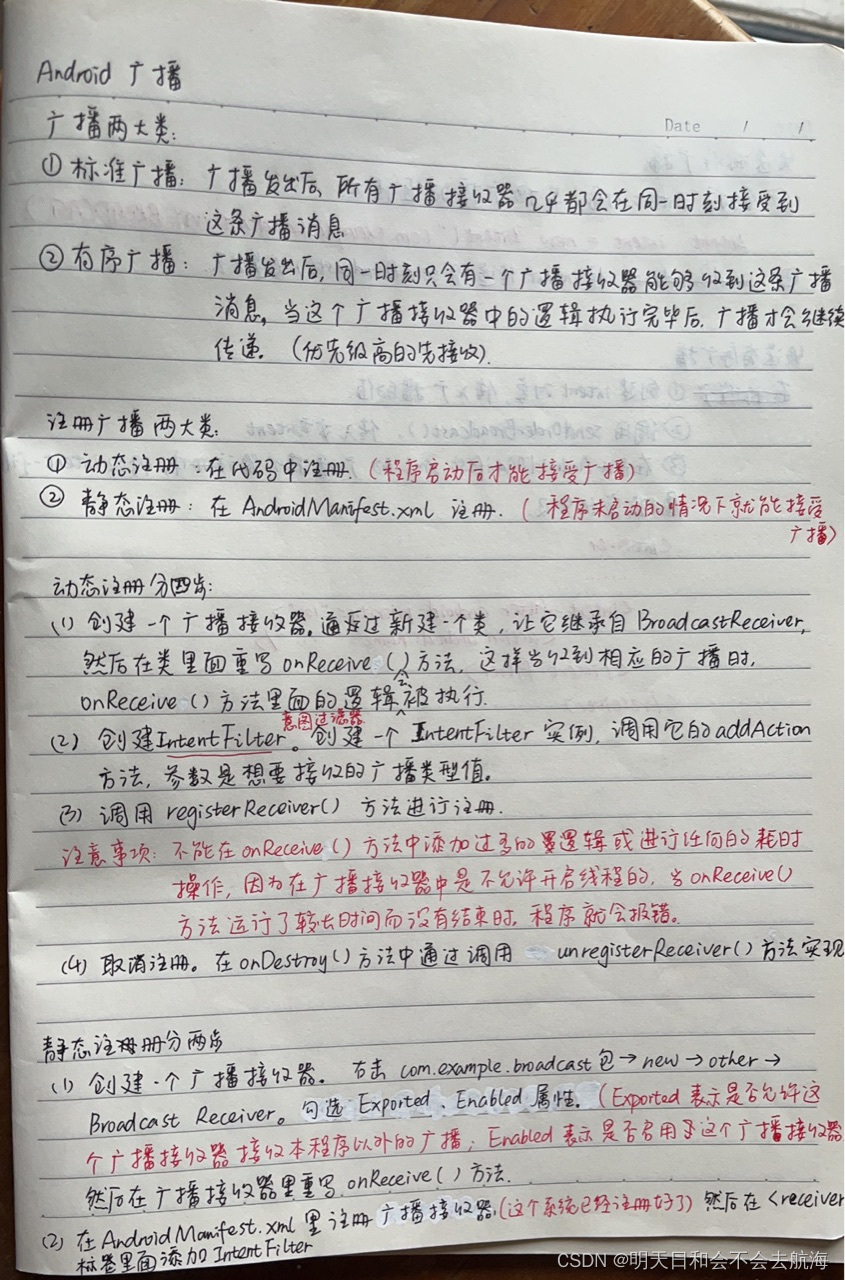 Android 广播
Date / /
广播两大类:
① 标准广播: 广播发出后, 所有广播接收器几乎都会在同一时刻接受到
这条广播消息
② 有序广播: 广播发出后, 同一时刻只会有一个广播接收器能够收到这条广播
消息, 当这个广播接收器中的逻辑执行完毕后, 广播才会继续
传递. (优先级高的先接收).
注册广播两大类:
① 动态注册: 在代码中注册. (程序启动后才能接受广播)
② 静态注册: 在 AndroidManifest.xml 注册. (程序未启动的情况下就能接受
广播)
动态注册分四步:
(1) 创建一个广播接收器。通过新建一个类, 让它继承自 BroadcastReceiver,
然后在类里面重写 onReceive () 方法, 这样当收到相应的广播时,
onReceive () 方法里面的逻辑会被执行.
意图过滤器
(2) 创建IntentFilter。创建一个 IntentFilter 实例, 调用它的 addAction
方法, 参数是想要接收的广播类型值。
(3) 调用 registerReceiver() 方法进行注册.
注意事项: 不能在 onReceive () 方法中添加过多的逻辑或进行任何的耗时
操作, 因为在广播接收器中是不允许开启线程的, 当 onReceive()
方法运行了较长时间而没有结束时, 程序就会报错。
(4) 取消注册。在 onDestroy() 方法中通过调用 unregisterReceiver() 方法实现
静态注册分两步
(1) 创建一个广播接收器. 右击 com.example.broadcast 包→new→other→
Broadcast Receiver。勾选 Exported、Enabled 属性。(Exported 表示是否允许这
个广播接收器接收本程序以外的广播; Enabled 表示是否启用这个广播接收器
然后在广播接收器里重写 onReceive() 方法.
(2) 在 AndroidManifest.xml 里注册广播接收器, (这个系统已经注册好了) 然后在 <receiver
标签里面添加 IntentFilter
CSDN @明天日和会不会去航海